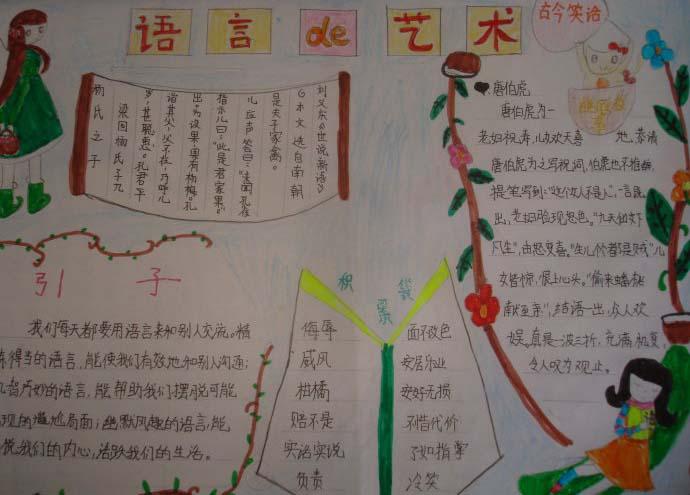 语言de艺术
古今笑话
杨氏之子
梁国杨氏子九
岁,甚聪惠。孔君平
诣其父,父不在,乃呼儿
出。为设果,果有杨梅。孔
指示儿曰:“此是君家果。”
儿应声答曰:“未闻孔雀
是夫子家禽。
(本文选自南朝
刘义庆《世说新语》
唐伯虎
唐伯虎为一
老妇祝寿,儿欢天喜地,恭请
唐伯虎为之写祝词,伯虎也不推辞,
提笔写到:“这个女人不是人”,一言既
出,老妇脸现怒色。“九天仙女下
凡生”,由怒变喜。“生儿个个都是贼”儿
女皆惊,恨上心头。“偷来蟠桃
献至亲”,结语一出,众人欢
娱。真是一波三折,充满机变,
令人叹为观止。
引子
我们每天都要用语言来和别人交流。精
练得当的语言,能使我们有效地和别人沟通;
机智巧妙的语言,能帮助我们摆脱可能
现的尴尬局面;幽默风趣的语言,能
悦我们的内心,活跃我们的生活。
积累袋
侮辱
威风
柑橘
赔不是
实话实说
负责
面不改色
安居乐业
安好无损
不惜代价
了如指掌
冷笑